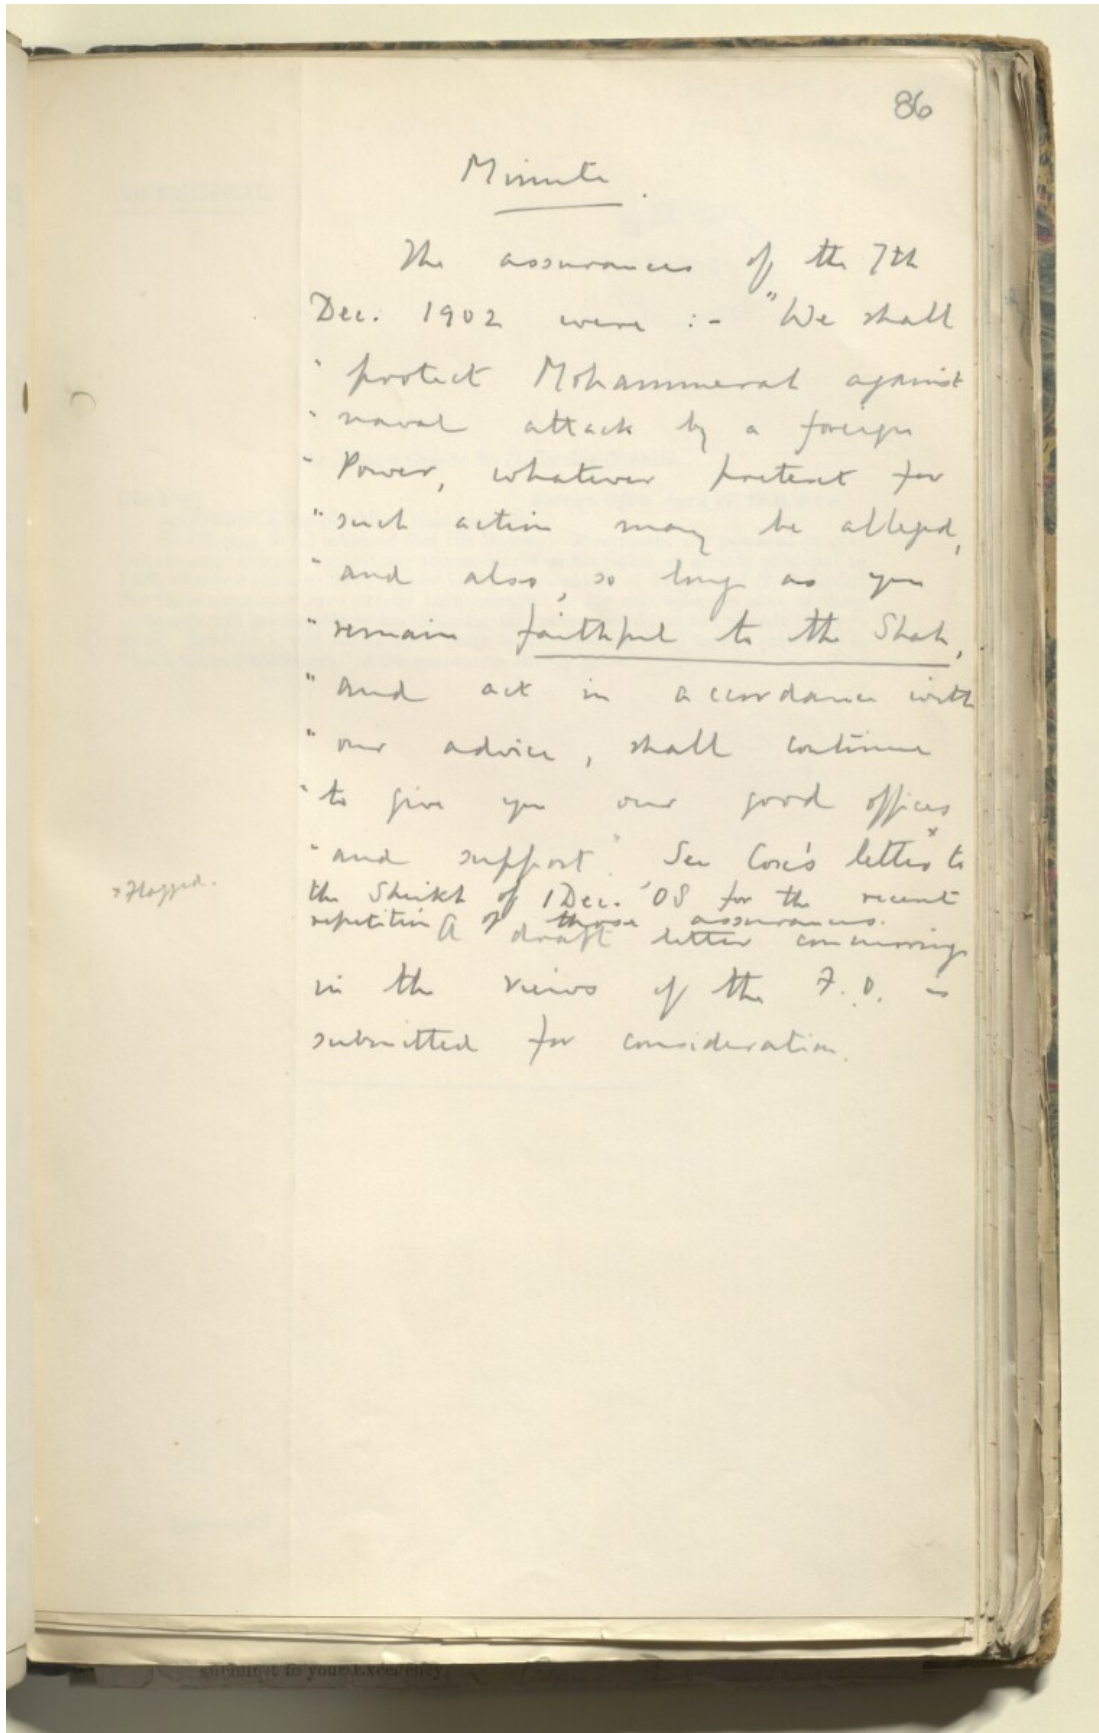 86
Minute.
The assurances of the 7th
Dec. 1902 were :- "We shall
" protect Mohammerah against
" naval attack by a foreign
" Power, whatever pretext for
" such action may be alleged,
" and also, so long as you
" remain faithful to the Shah,
" and act in accordance with
" our advice, shall continue
" to give you our good offices
" and support." See Cox's letter x to
x Flagged.
the Sheikh of 1 Dec. '08 for the recent
repetition of those assurances.
A draft letter concurring
in the views of the F.O. is
submitted for consideration.
submit to your Excellency.